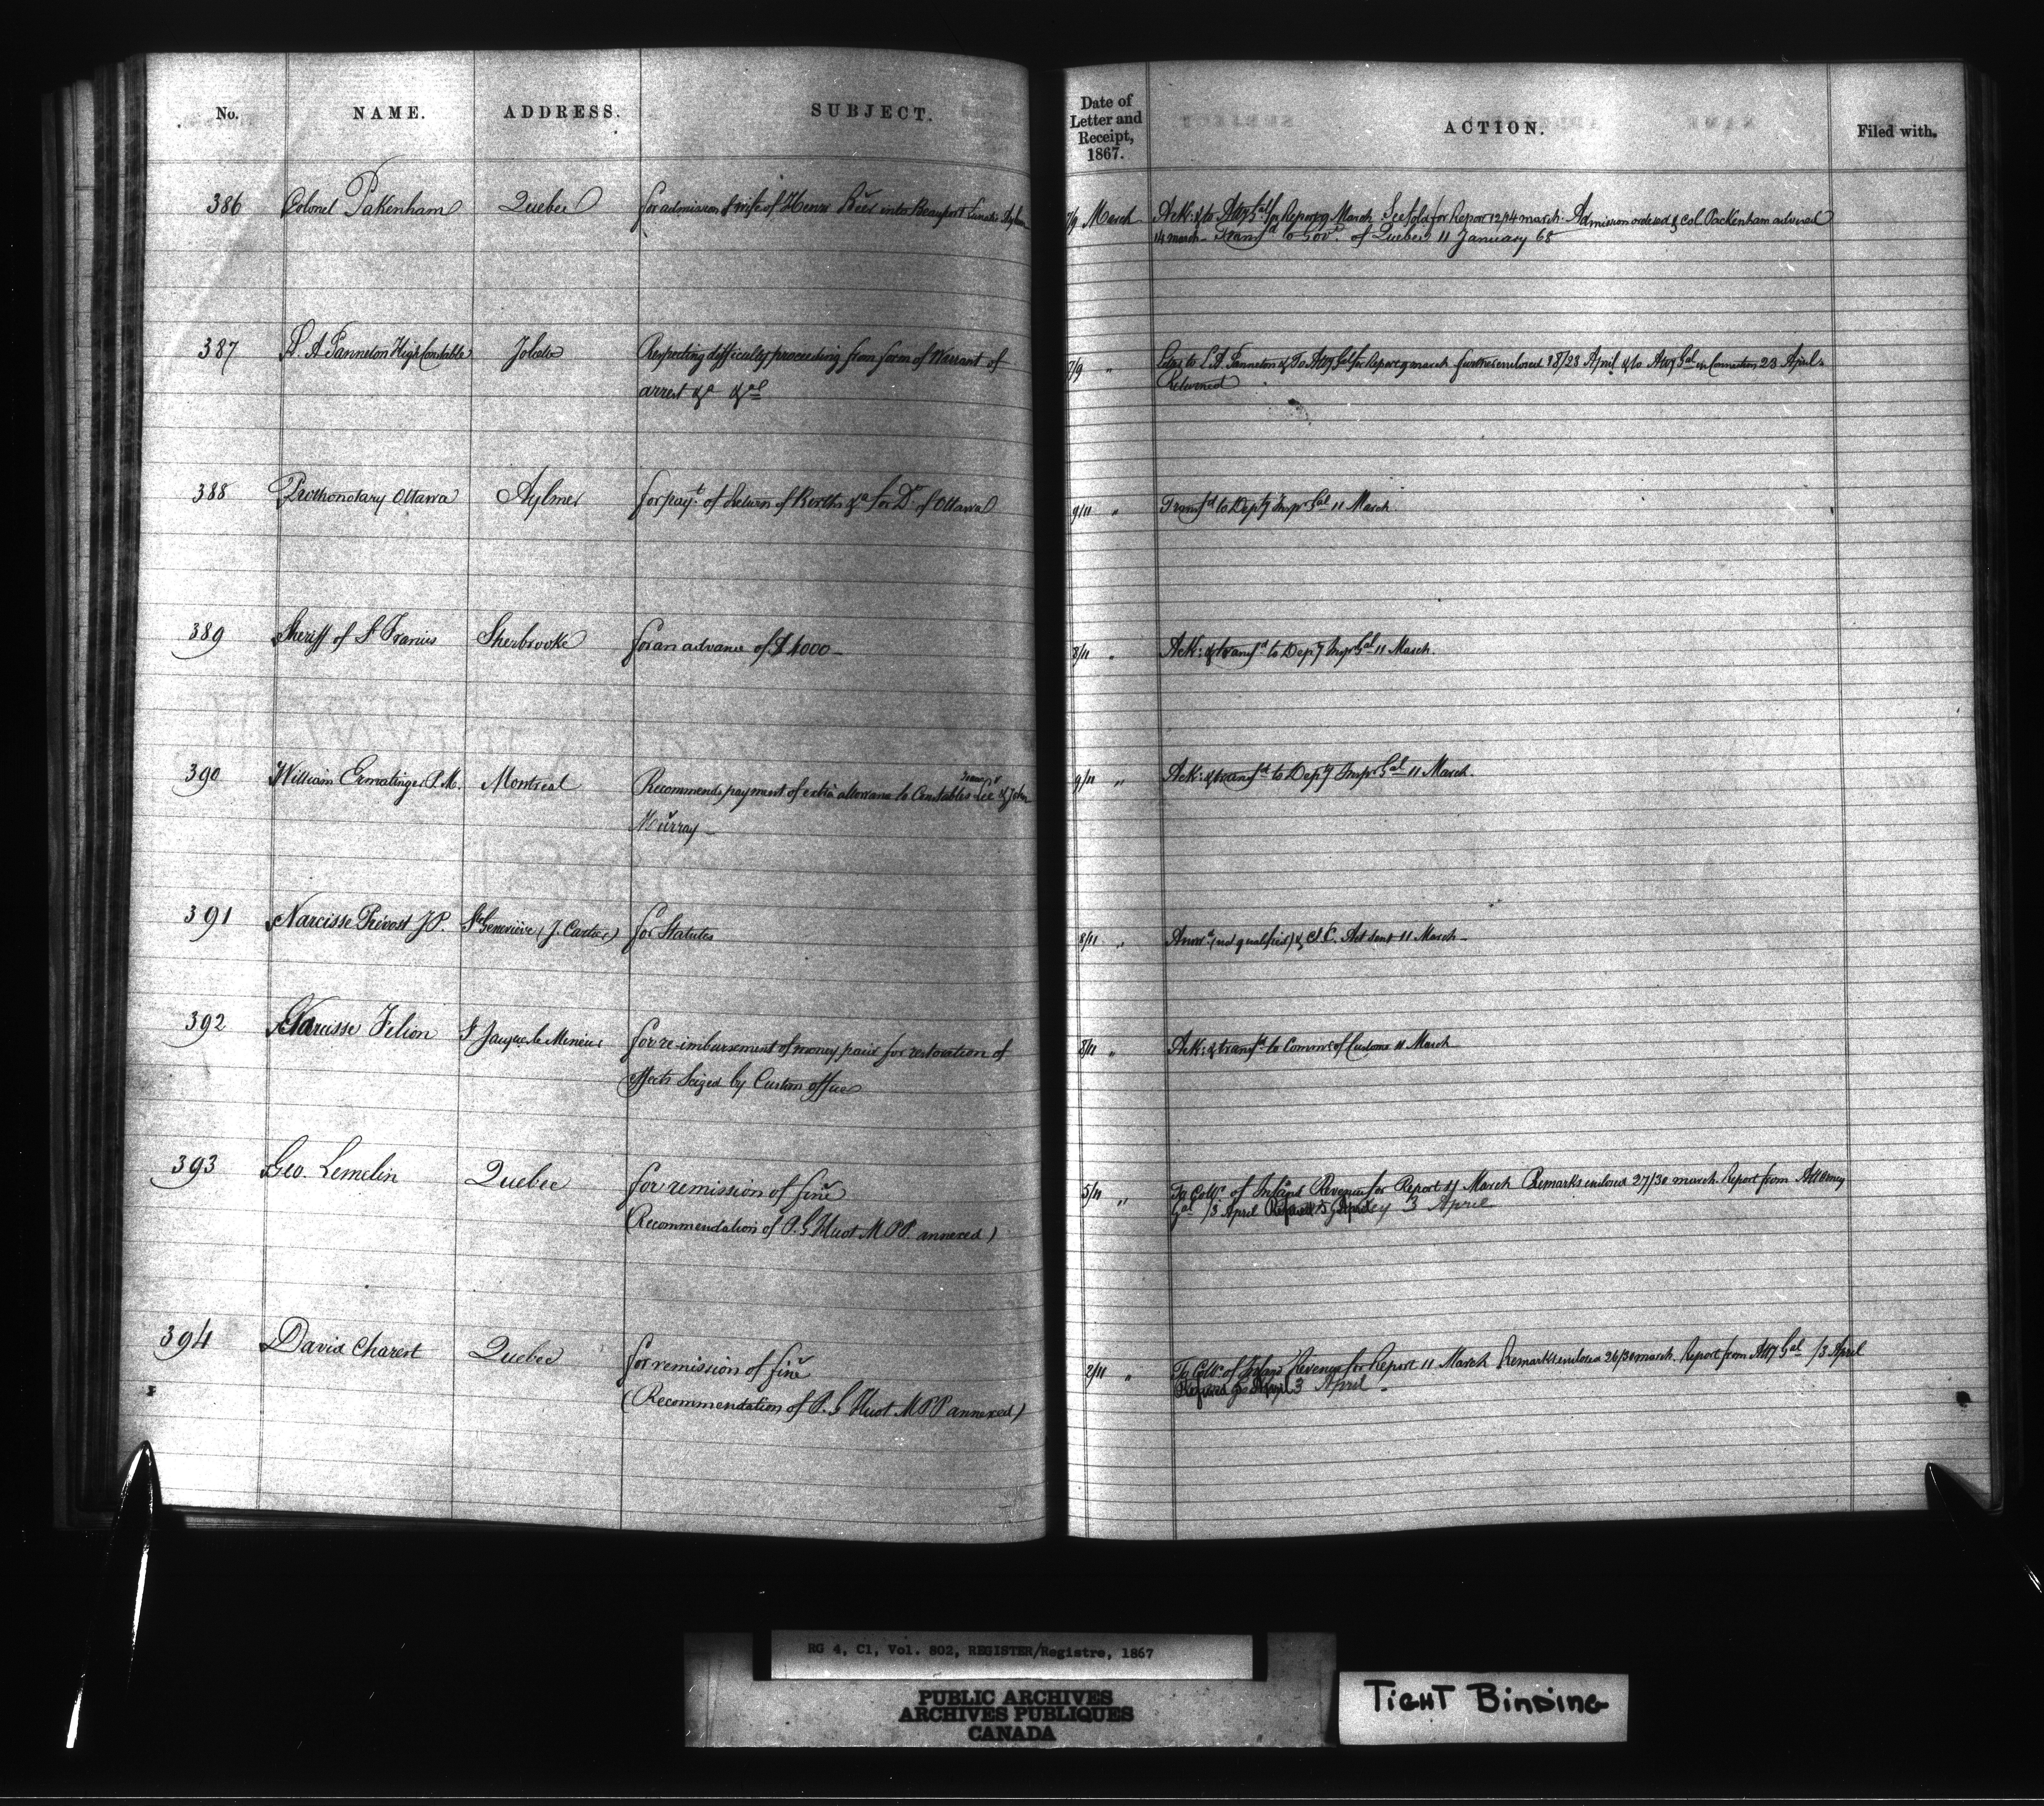 No. NAME. ADDRESS. SUBJECT. Date of Letter and Receipt, 1867. ACTION. Filed with.
386 Colonel Pakenham Quebec for admission of wife of Henry into Beauport Lunatic Asylum 7/9 March Ack: & to Atty Gal for Report 9 March See fold for Report 12/14 march. Admission ordered & Col. Packenham advised
14 march. Transfd to Govt. of Quebec 11 January 68
387 L. A Panneton High Constable Joliette Respecting difficulty proceeding from form of Warrant of 7/9 " to L. A. Panneton & To Atty Gal for Report 9 march further enclosed 18/23 April & to Atty Gal in Connection 23 April.
arrest &a &al Returned
388 Prothonotary Ottawa Aylmer for payt. of Return of Births &a for Dt. of Ottawa 9/11 " Transfd to Depy Inspr Gal 11 March
389 Sheriff of St Francis Sherbrooke for an advance of $1000 8/11 " Ack: & transfd to Depy Inspr Gal 11 March.
390 William Ermatinger P.M. Montreal Recommends payment of extra allowance to Constables Lee & John 9/11 " Ack: & transfd to Depy Inspr Gal 11 March.
Murray
391 Narcisse Prévost J P. Ste Geneviève (J. Cartier) for Statutes 8/11 " Answd (not qualified) & J.C. Act sent 11 March
392 Narcisse Filion St Jacques le Mineur for re-imbursement of money paid for restoration of 8/11 " Ack: & transfd to Commr of Customs 11 March
effects Seized by Custom officer
393 Geo. Lemelin Quebec for remission of fine 5/11 " To Collr. of Inland Revenue for Report 11 March Remarks enclosed 27/30 march. Report from Attorney
(Recommendation of P. G Huot M PP. annexed) Gal /3 April 3 April
394 David Charest Quebec for remission of fine 2/11 " To Collr. of Inland Revenue for Report 11 March Remarks enclosed 26/30 march. Report from Atty Gal /3 April
(Recommendation of P. G Huot M PP annexed) 3 April
RG 4, C1, Vol. 802, REGISTER/Registre, 1867
PUBLIC ARCHIVES
ARCHIVES PUBLIQUES
CANADA
TIGHT BINDING